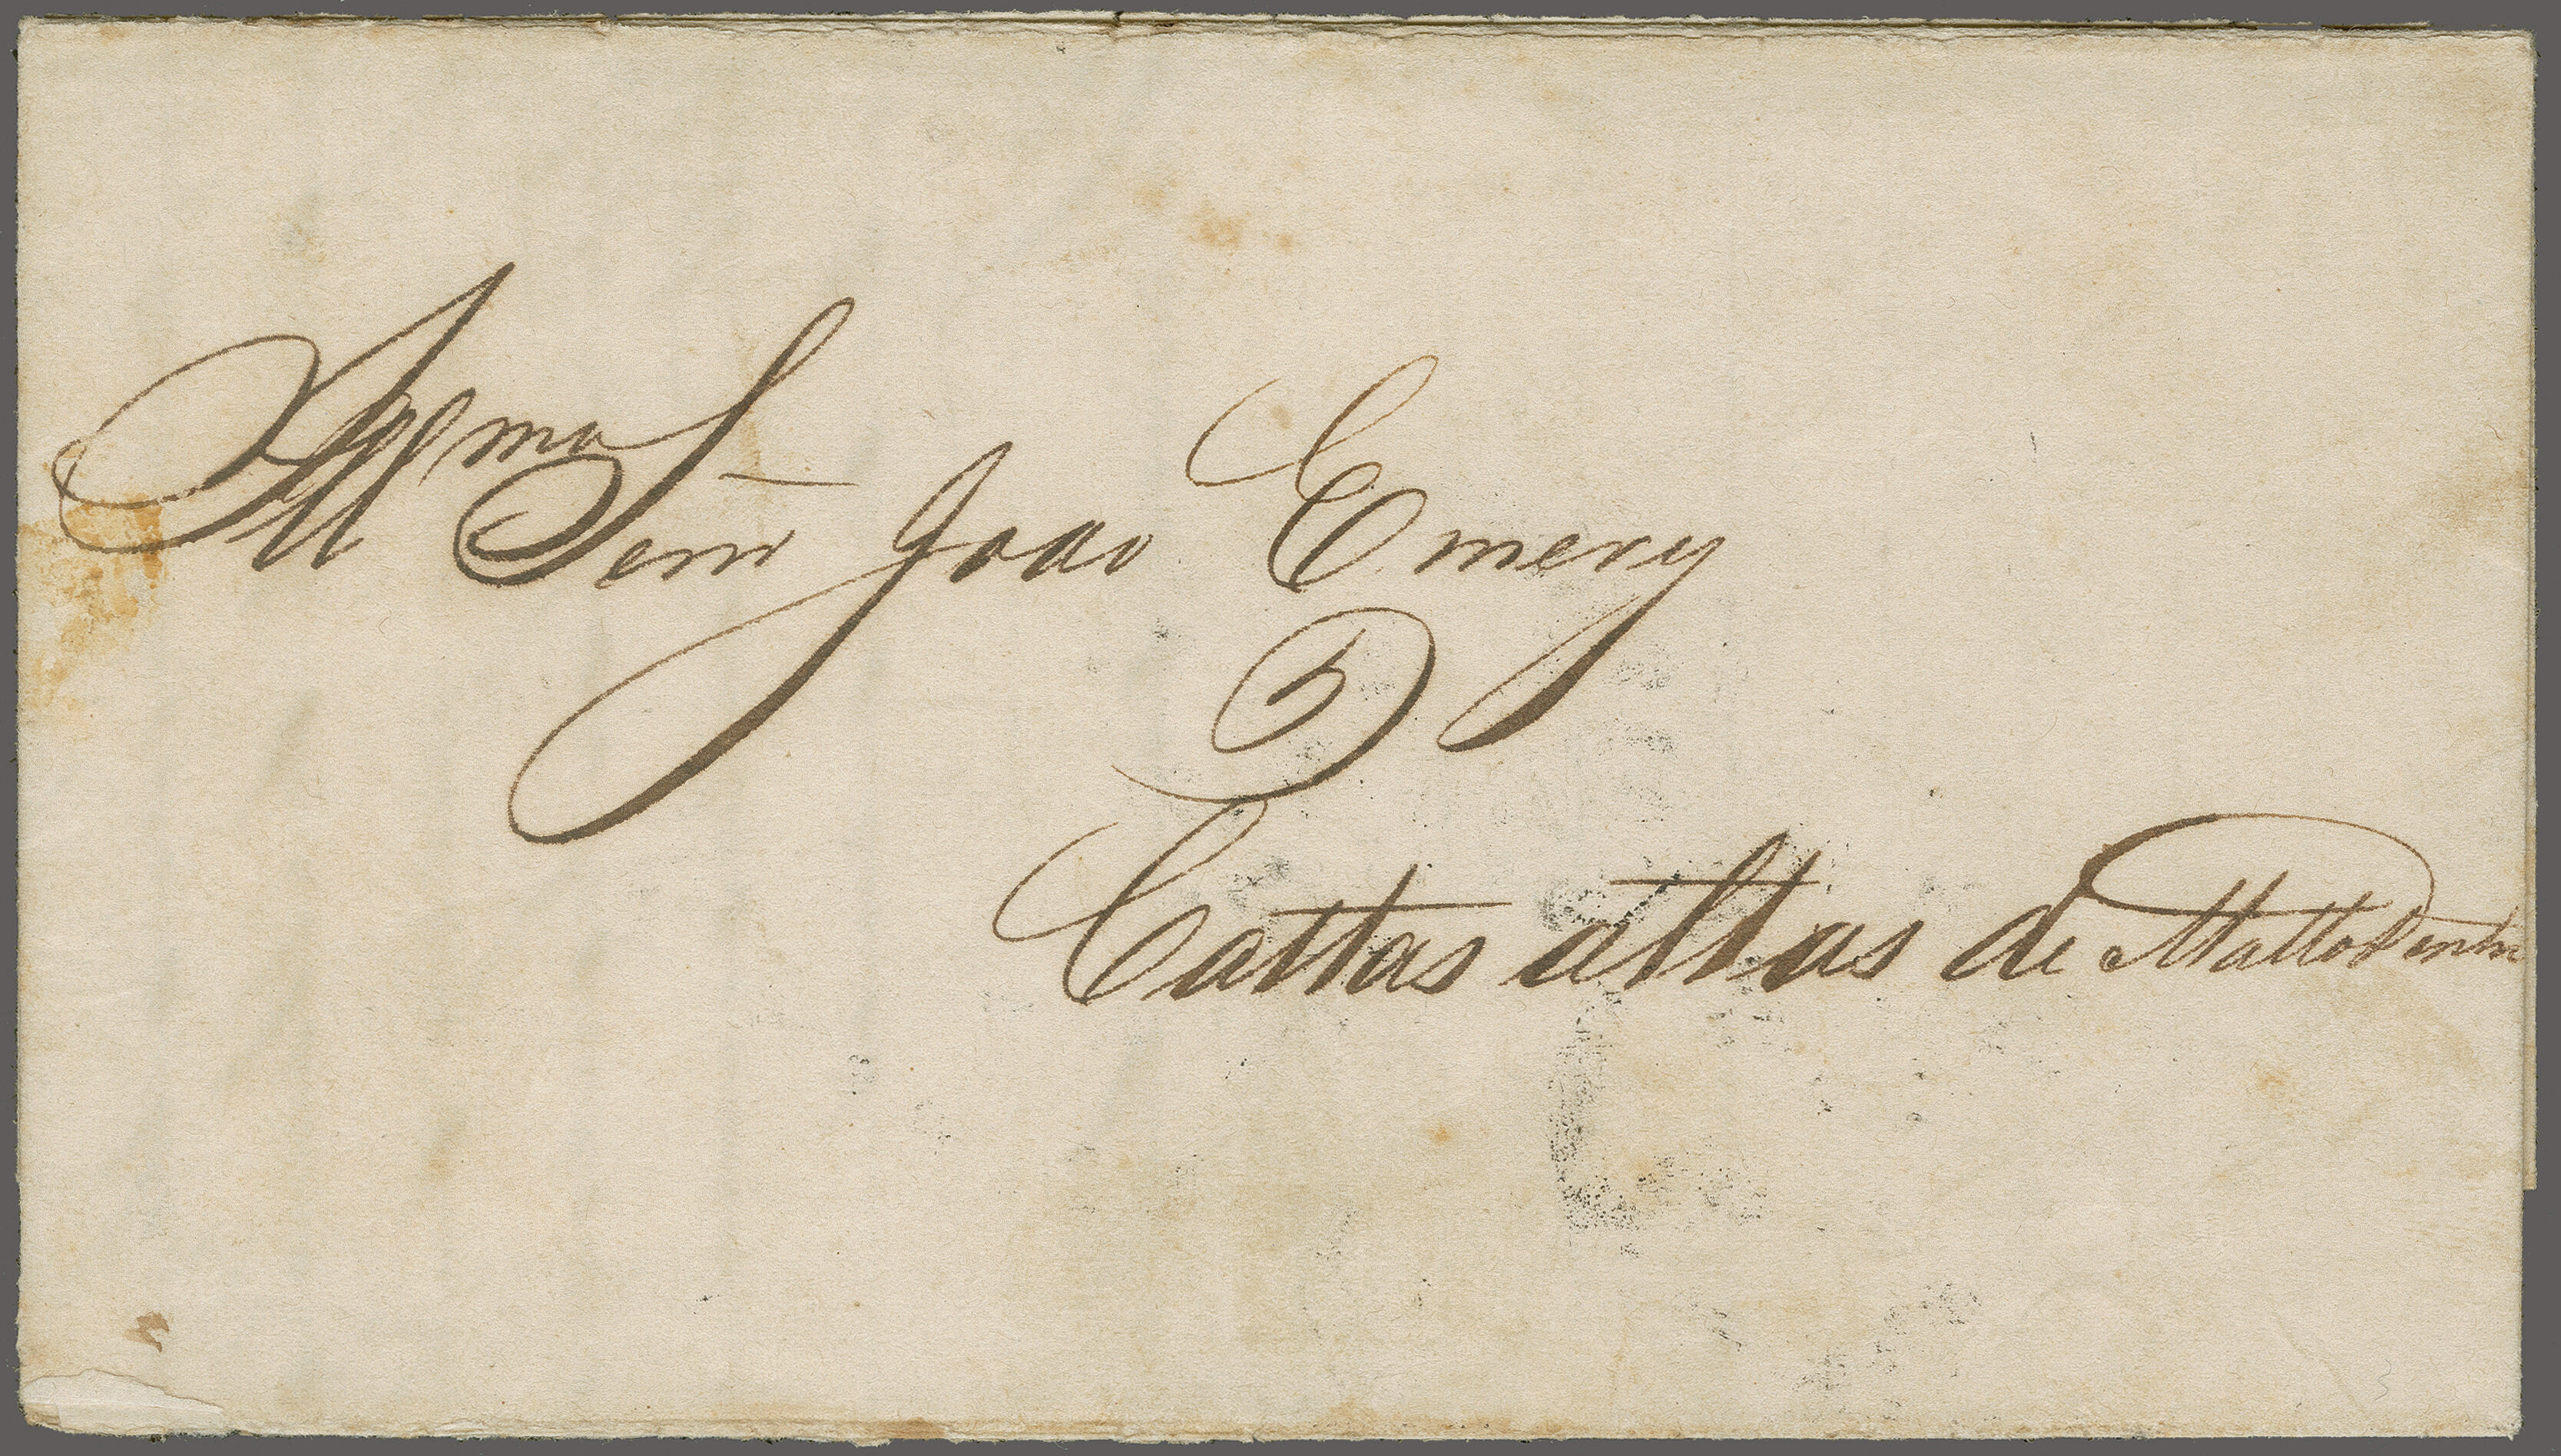 Illmo Senr João Emery
Cattas altas de Matto Dentro